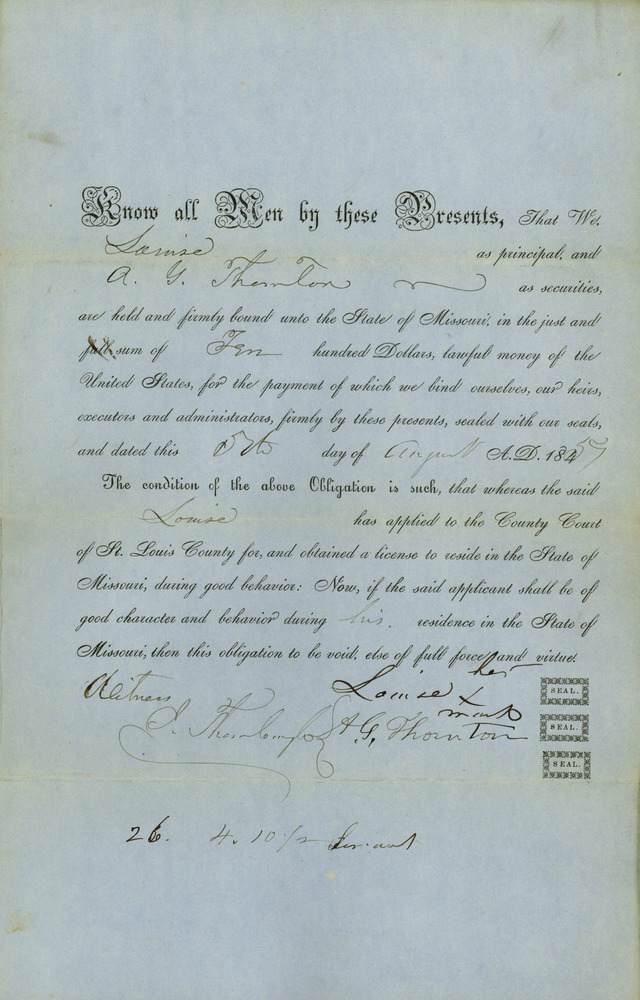 Know all Men by these Presents, That We,
Louise as principal, and
A. G. Thornton as securities,
are held and firmly bound unto the State of Missouri, in the just and
full sum of Ten hundred Dollars, lawful money of the
United States, for the payment of which we bind ourselves, our heirs,
executors and administrators, firmly by these presents, sealed with our seals,
and dated this 5th day of August A.D. 1857
The condition of the above Obligation is such, that whereas the said
Louise has applied to the County Court
of St. Louis County for, and obtained a license to reside in the State of
Missouri, during good behavior: Now, if the said applicant shall be of
good character and behavior during his residence in the State of
Missouri, then this obligation to be void, else of full force and virtue.
Witness
her
Louise x
mark
SEAL.
A G, Thornton
SEAL.
SEAL.
26. 4. 10 1/2 Servant